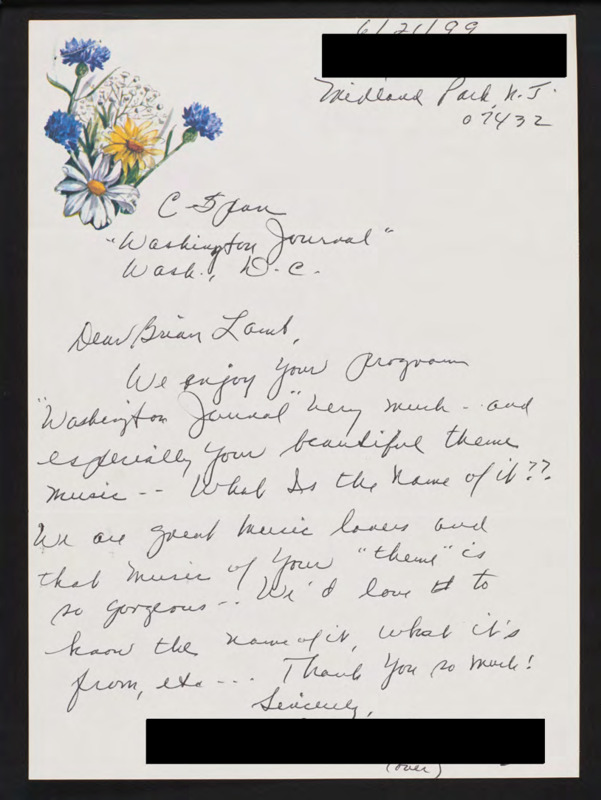 6/21/99
Midland Park, N.J.
07432
C-Span
"Washington Journal"
Wash., D.C.
Dear Brian Lamb,
We enjoy your program
"Washington Journal" very much - and
especially your beautiful theme
music -- What Is the name of it??
We are great music lovers and
that music of your "theme" is
so gorgeous -- We'd love to
know the name of it, what it's
from, etc --- Thank you so much!
Sincerely,
(over)